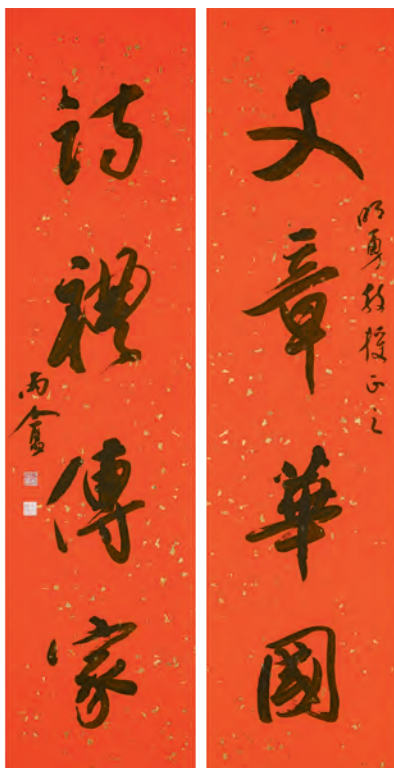 文章華國
明勇教授正之
詩禮傳家